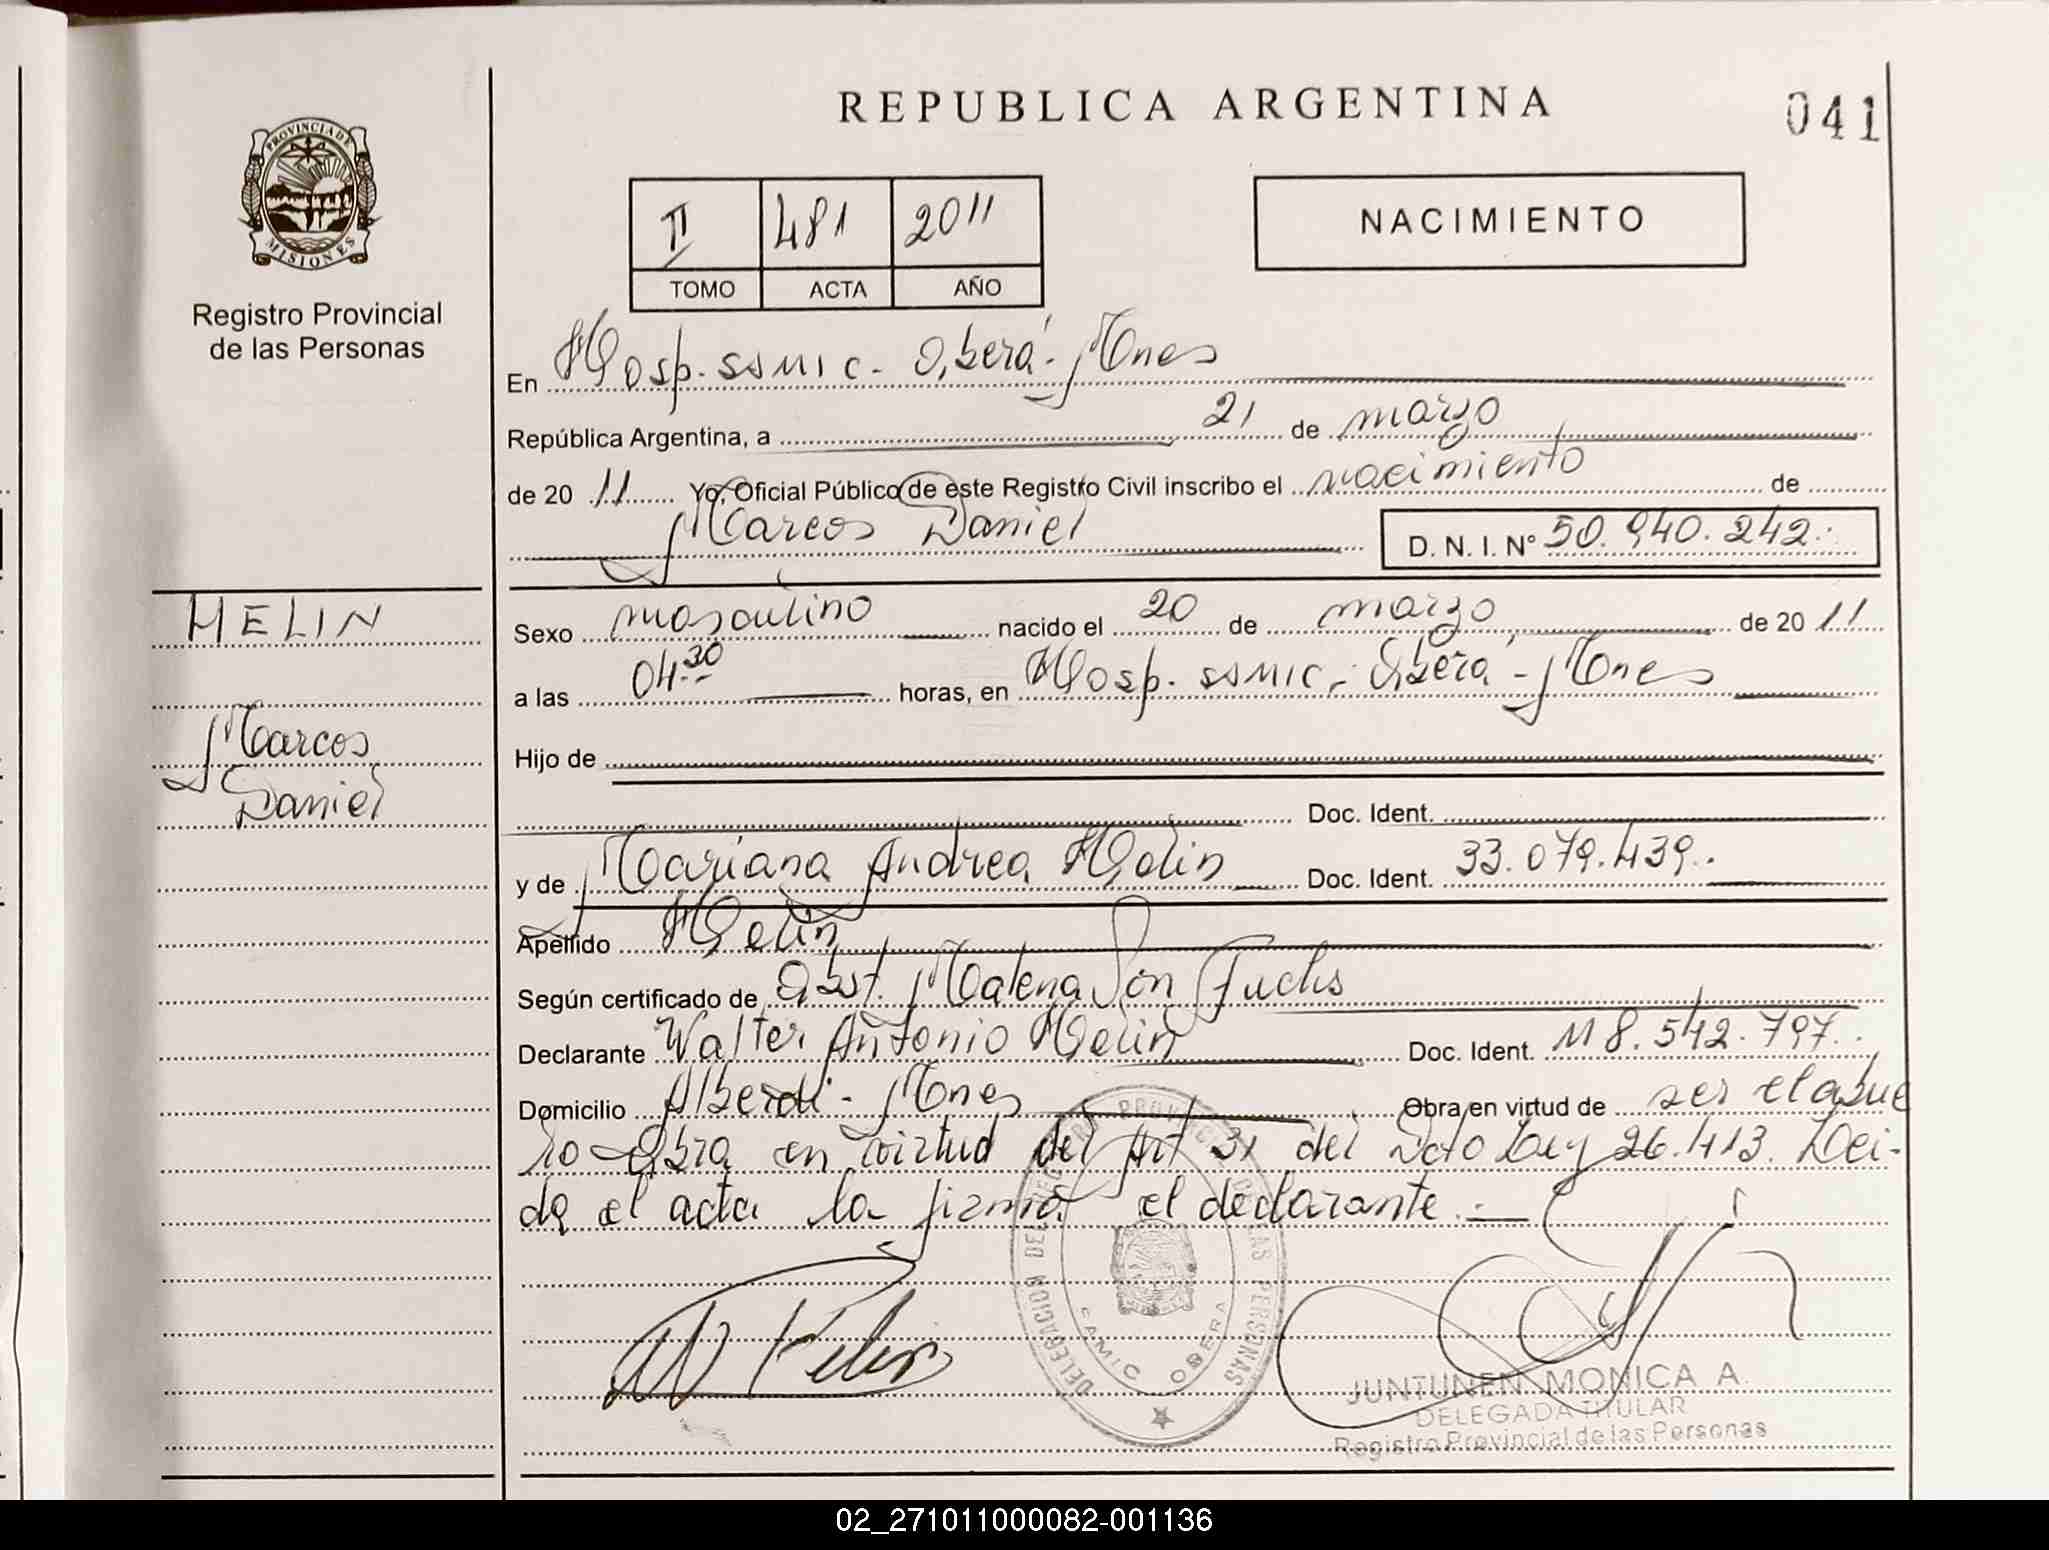 REPUBLICA ARGENTINA
041
PROVINCIA DE
MISIONES
Registro Provincial
de las Personas
II 481 2011
TOMO ACTA AÑO
NACIMIENTO
En Hosp. SSMIC - Oberá - Mnes
República Argentina, a 21 de marzo
de 2011 Yo, Oficial Público de este Registro Civil inscribo el nacimiento de
Marcos Daniel D. N. I. Nº 50.940.242.
HELIN
Marcos
Daniel
Sexo masculino nacido el 20 de marzo de 2011
a las 04.30 horas, en Hosp. SSMIC - Oberá - Mnes
Hijo de
Doc. Ident.
y de Mariana Andrea Helin Doc. Ident. 33.079.439.
Apellido Helin
Según certificado de Obst. Malena Von Fuchs
Declarante Walter Antonio Helin Doc. Ident. M 8.542.797.
Domicilio Alberdi - Mnes Obra en virtud de ser el abue
lo - Obra en virtud del Art 31 del Dcto Ley 26.413. Lei-
da el acta la firma el declarante.
Helin
DELEGACION DEL REGISTRO PROVINCIAL DE LAS PERSONAS
SAMIC OBERA
JUNTUNEN MONICA A.
DELEGADA TITULAR
Registro Provincial de las Personas
02_271011000082-001136